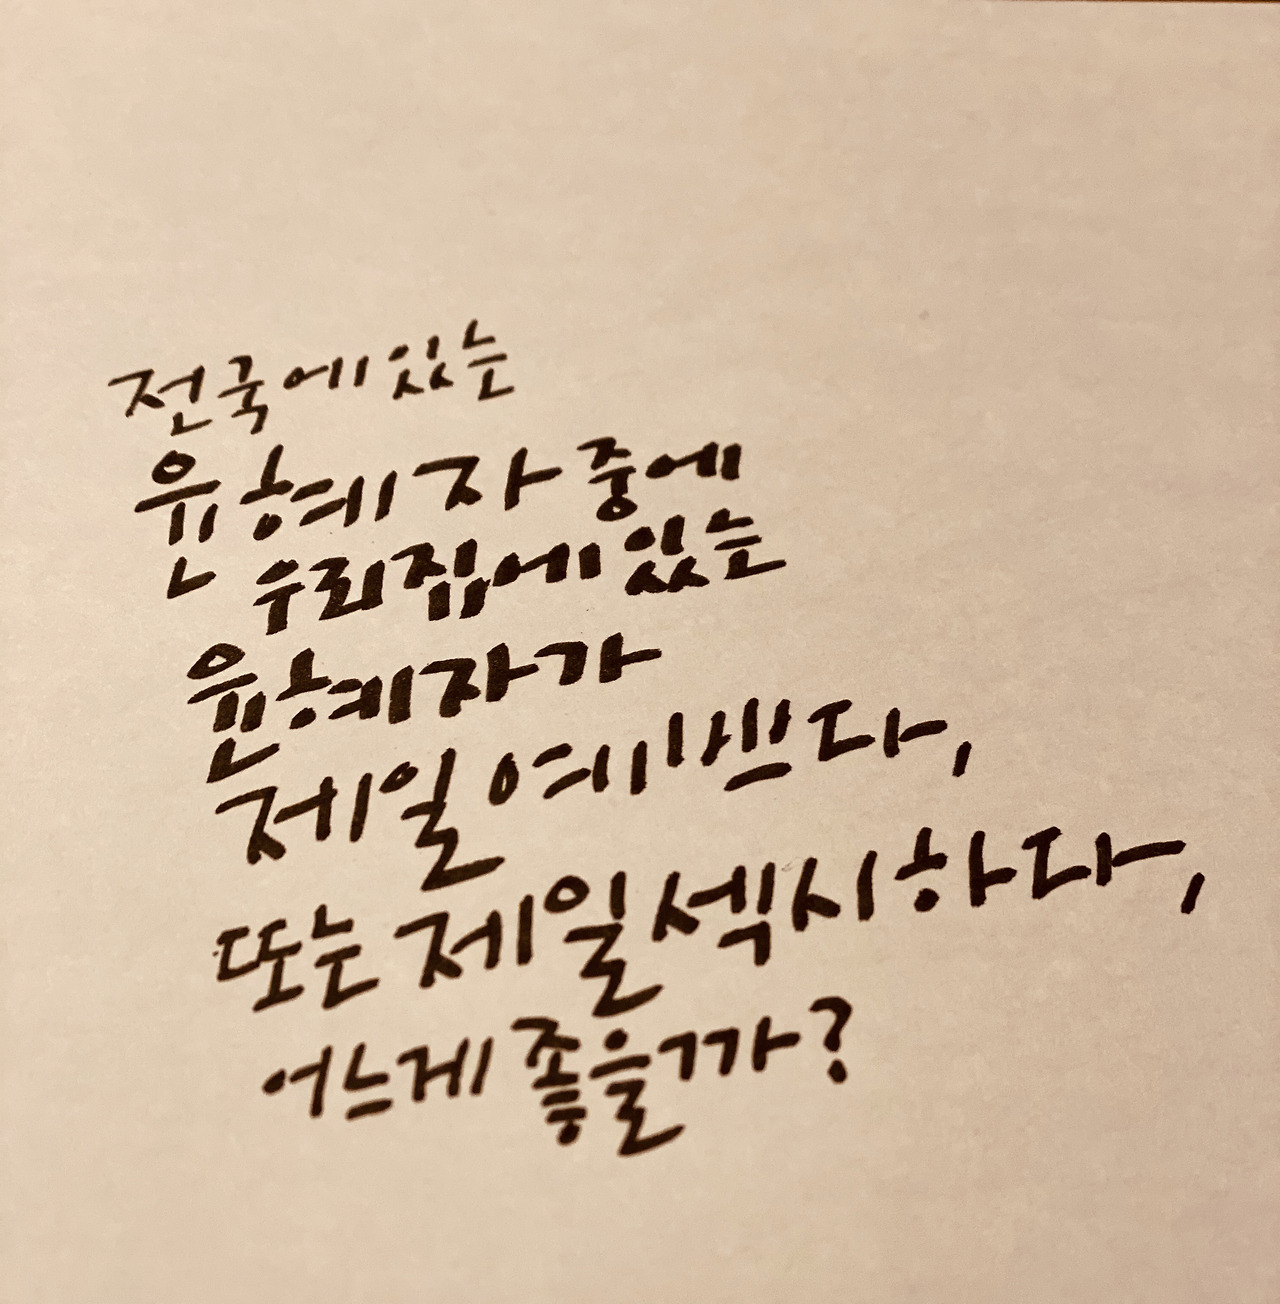 전국에 있는
윤혜자 중에
우리집에 있는
윤혜자가
제일 예쁘다,
또는 제일 섹시하다,
어느게 좋을까?